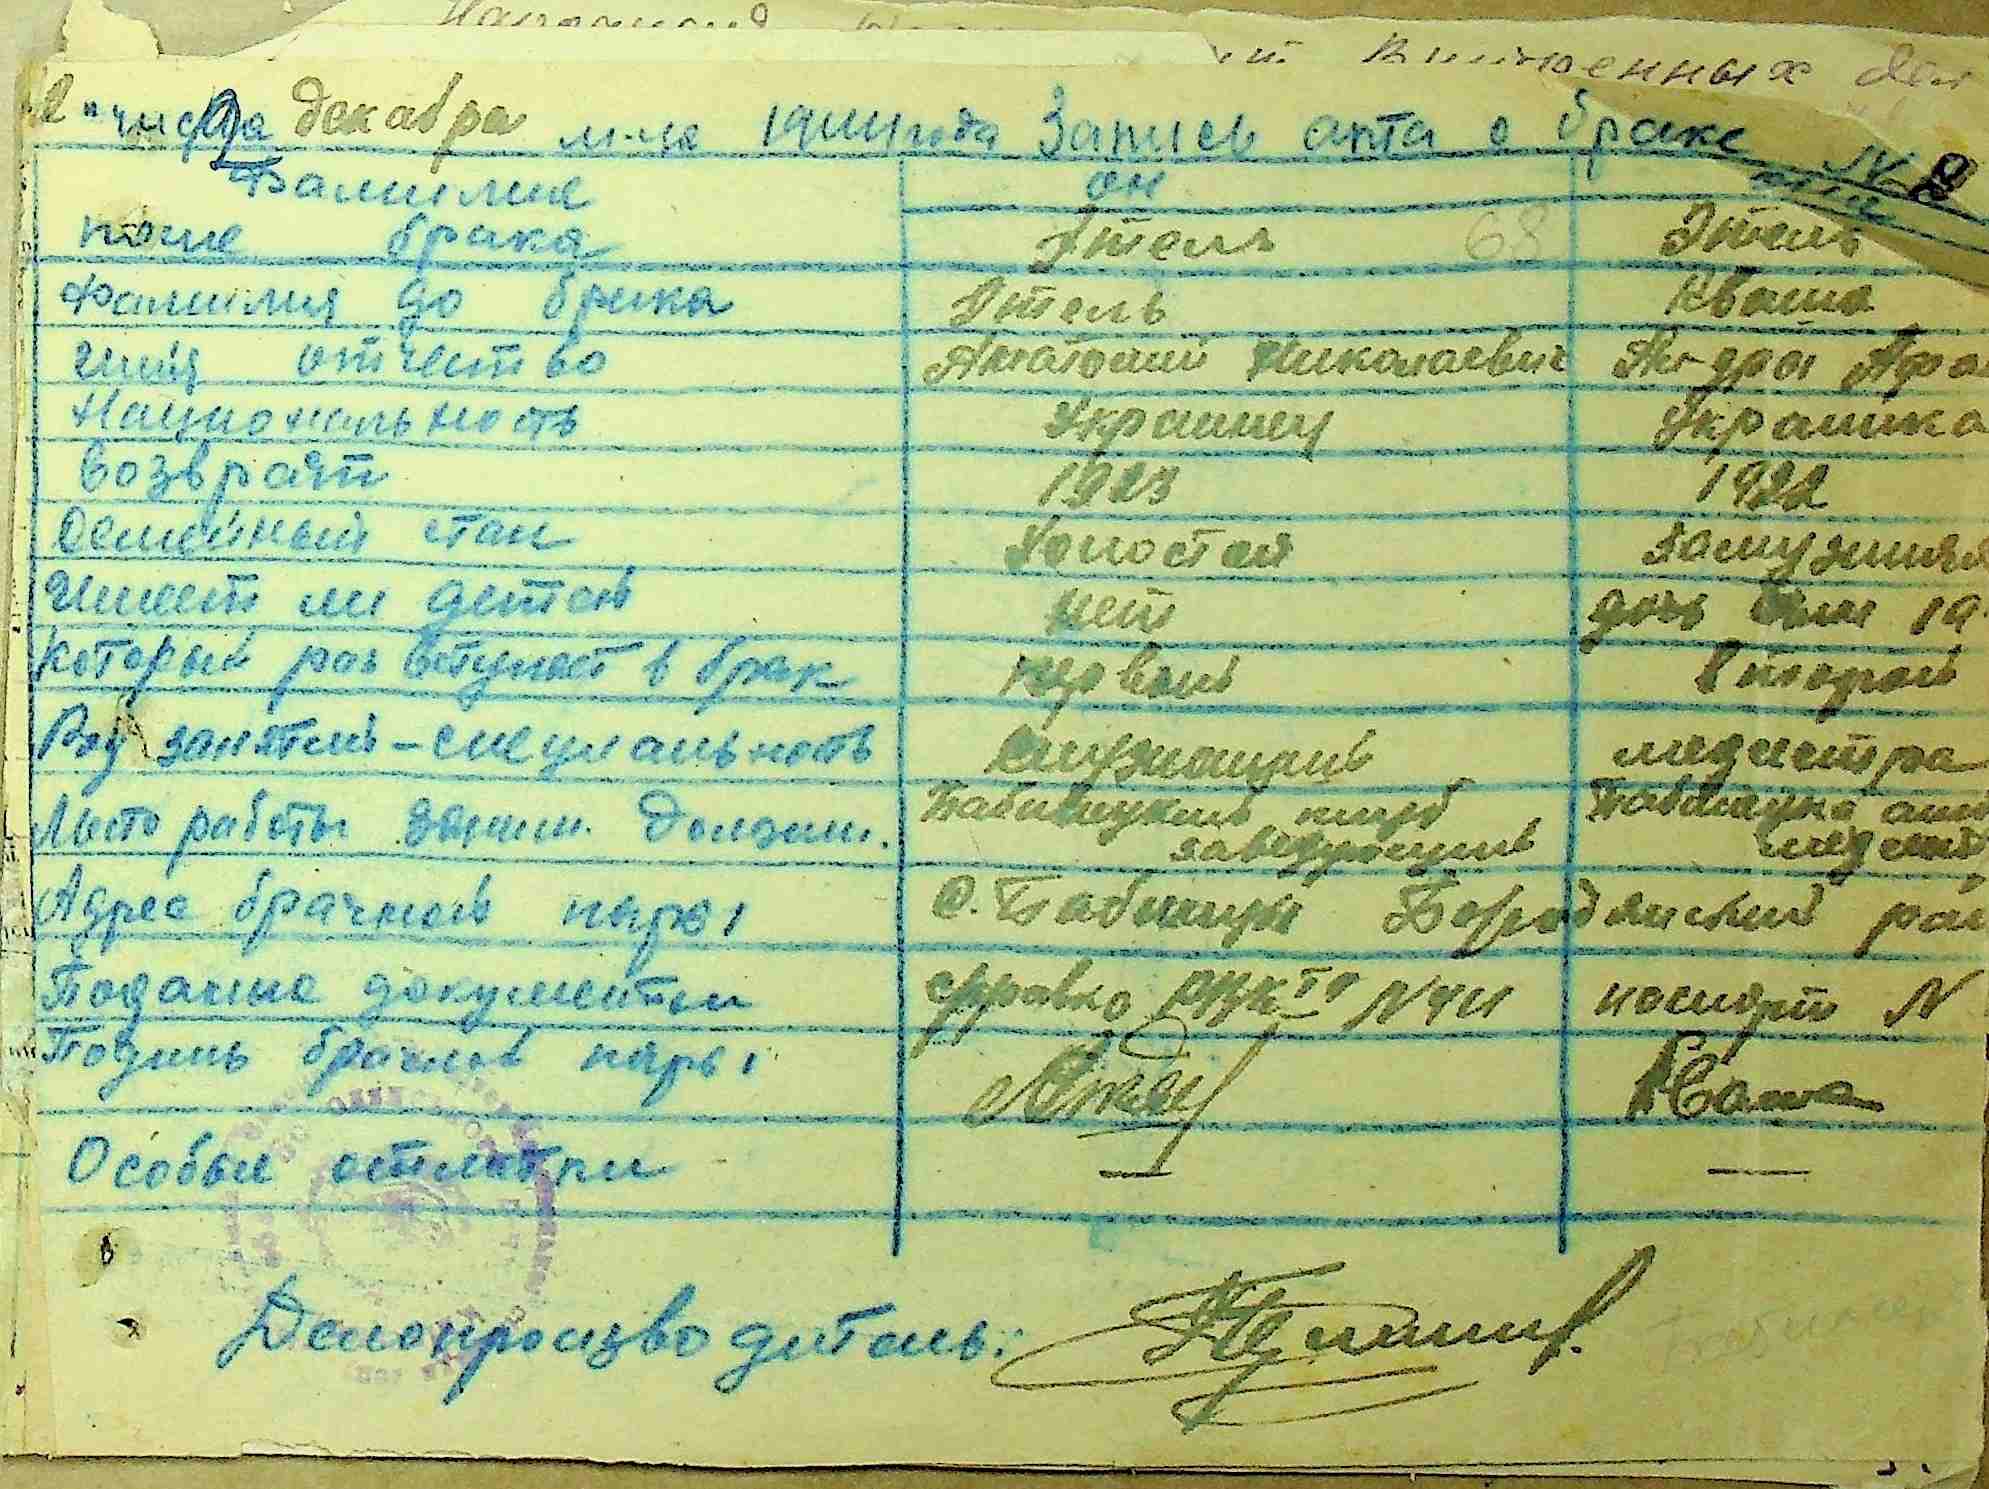 числа декабря м-ца 1944 года Запись акта о браке № 8
Фамилия он она
после брака Этель 68 Этель
Фамилия до брака Этель Кваша
Имя отчество Анатолий Николаевич Ал-дра Афа
Национальность Украинец Украинка
Возвраст 1923 1922
Семейный стан Холостой замужняя
Имеет ли детей нет дочь 19
Который раз вступает в брак первый второй
Род занятий - специальность служащий медсестра
Место работы заним. должн. Бабинецкий клуб
заведующий
Адрес брачной пары с. Бабинцы Бородянский рай
Поданные документы справка N 411 паспорт N
Подпись брачной пары Кваша
Особые отметки — —
Делопроизводитель: